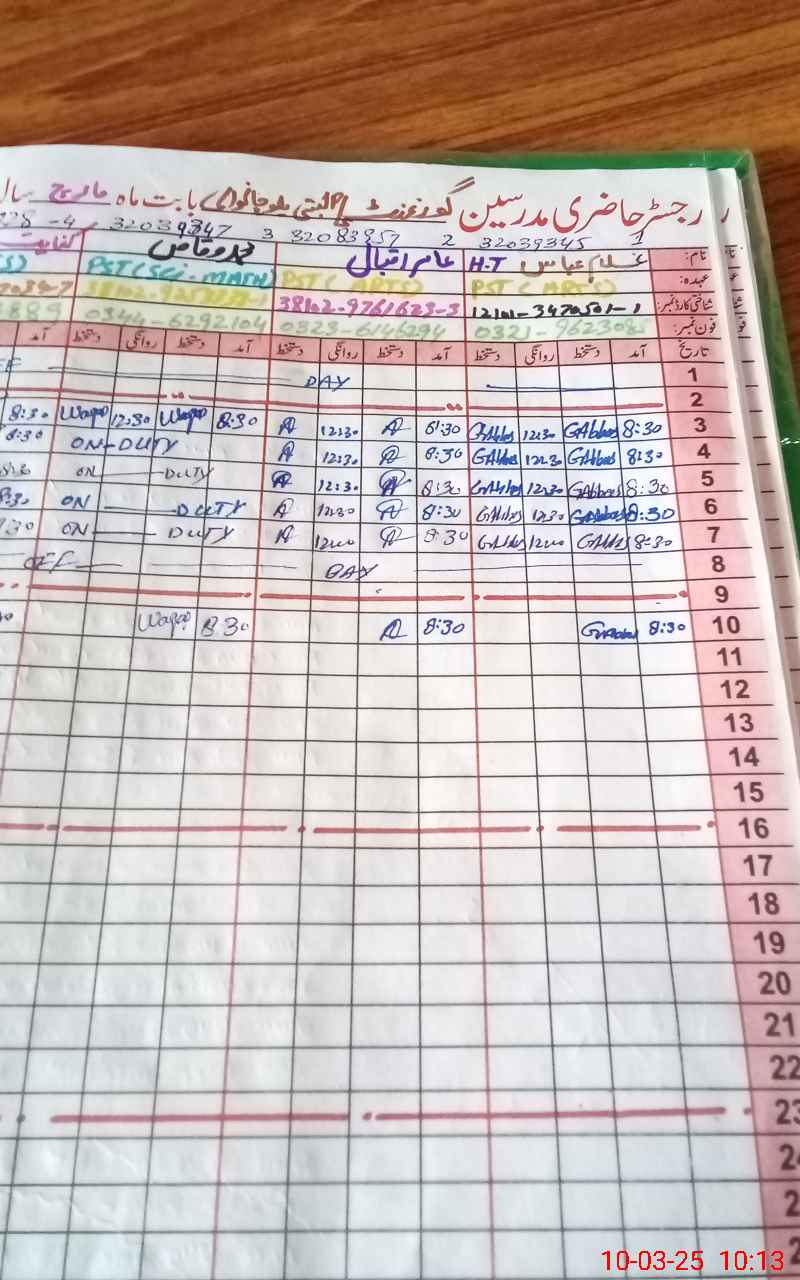 رجسٹر حاضری مدرسین گورنمنٹ بابت ماہ مارچ سال
1 32039345 2 32083957 3 32039347 4-
نام: غلام عباس H.T عامر اقبال محمد وقاص
عہدہ: PST (ARTS) PST (ARTS) PST (SCI-MATH)
شناختی کارڈ نمبر: 12101-3470501-1 38102-9761623-3
فون نمبر: 0323-6146294 0344-6292104
تاریخ آمد دستخط روانگی دستخط آمد دستخط روانگی دستخط آمد دستخط روانگی دستخط آمد
1 DAY
2
3 8:30 GAbbas 12:30 GAbbas 8:30 12:30 8:30 Waqas 12:30 Waqas 8:30
4 8:30 GAbbas 12:30 GAbbas 8:30 12:30 ON-DUTY 8:30
5 8:30 GAbbas 12:30 GAbbas 8:30 12:30 ON DUTY
6 8:30 GAbbas 12:30 GAbbas 8:30 12:30 ON DUTY
7 8:30 GAbbas 12:00 GAbbas 8:30 12:00 ON DUTY
8 OFF DAY
9
10 8:30 GAbbas 8:30 Waqas 8:30
11
12
13
14
15
16
17
18
19
20
21
22
23
10-03-25 10:13